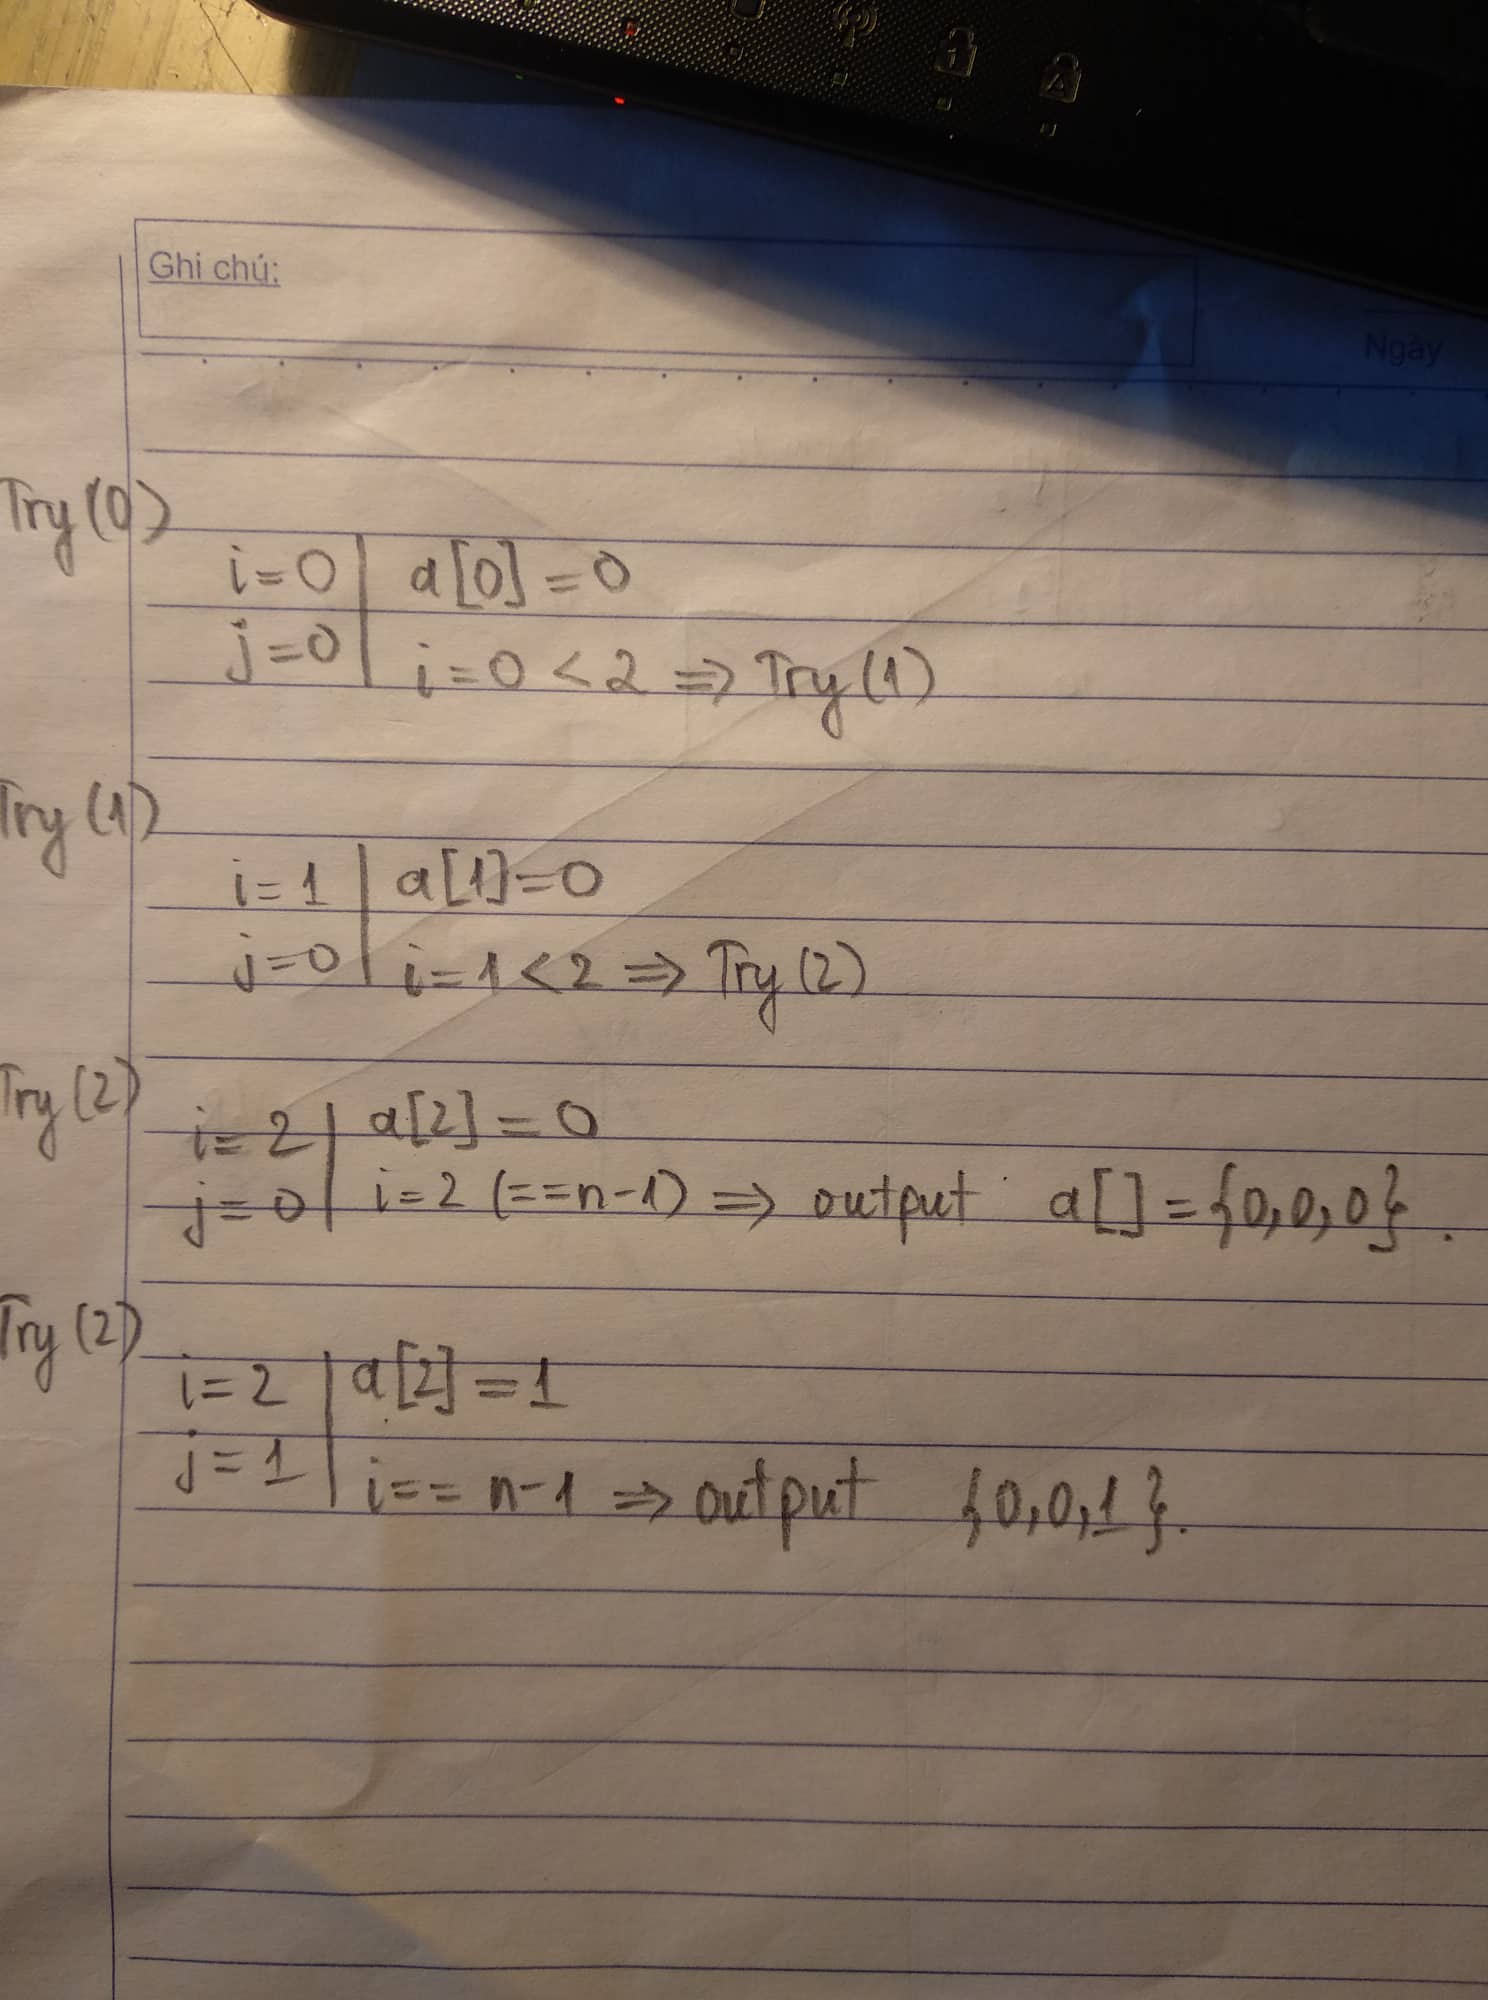 1
A
Ghi chú:
Ngày
Try(0)
i=0 | a[0]=0
j=0 | i=0<2 => Try(1)
Try(1)
i=1 | a[1]=0
j=0 | i=1<2 => Try(2)
Try(2)
i=2 | a[2]=0
j=0 | i=2 (==n-1) => output a[]={0,0,0}.
Try(2)
i=2 | a[2]=1
j=1 | i==n-1 => output {0,0,1}.